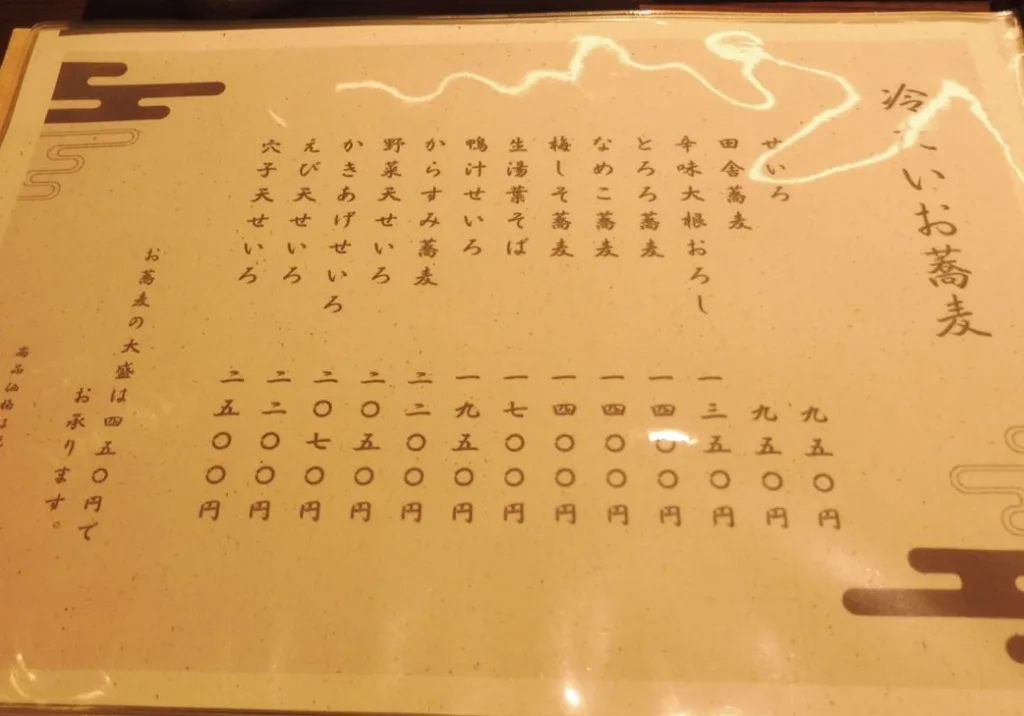 冷たいお蕎麦
せいろ 九五〇円
田舎蕎麦 九五〇円
辛味大根おろし 一三五〇円
とろろ蕎麦 一四〇〇円
なめこ蕎麦 一四〇〇円
梅しそ蕎麦 一四〇〇円
生湯葉そば 一七〇〇円
鴨汁せいろ 一九五〇円
からすみ蕎麦 二二〇〇円
野菜天せいろ 二〇五〇円
かきあげせいろ 二〇七〇円
えび天せいろ 二二〇〇円
穴子天せいろ 二五〇〇円
お蕎麦の大盛は四五〇円で
お承ります。
商品価格は